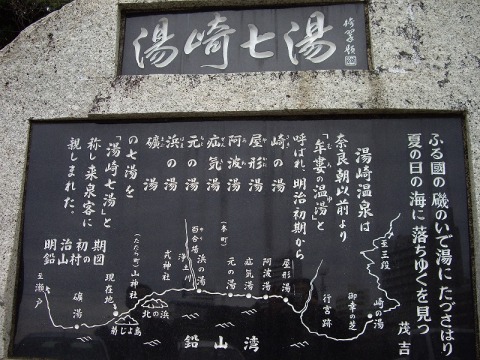 湯崎七湯
ふる國の磯のいで湯にたづさはり
夏の日の海に落ちゆくを見つ
茂吉
湯崎温泉は
奈良朝以前より
「牟婁の温湯」と
むろ
ゆ
呼ばれ、明治初期から
崎の湯
屋形湯
阿波湯
疝気湯
元の湯
浜の湯
礦湯
の七湯を
「湯崎七湯」と
称し来泉客に
親しまれた。
明治初期
鉛山村の図
至三段
崎の湯
御幸の芝
行宮跡
屋形湯
阿波湯
疝気湯
元の湯
(本町)
浜の湯
百合場
浄土川
戎神社
北の浜
山神社
(たたら町)
現在地
礦湯
至瀬戸
鉛山湾